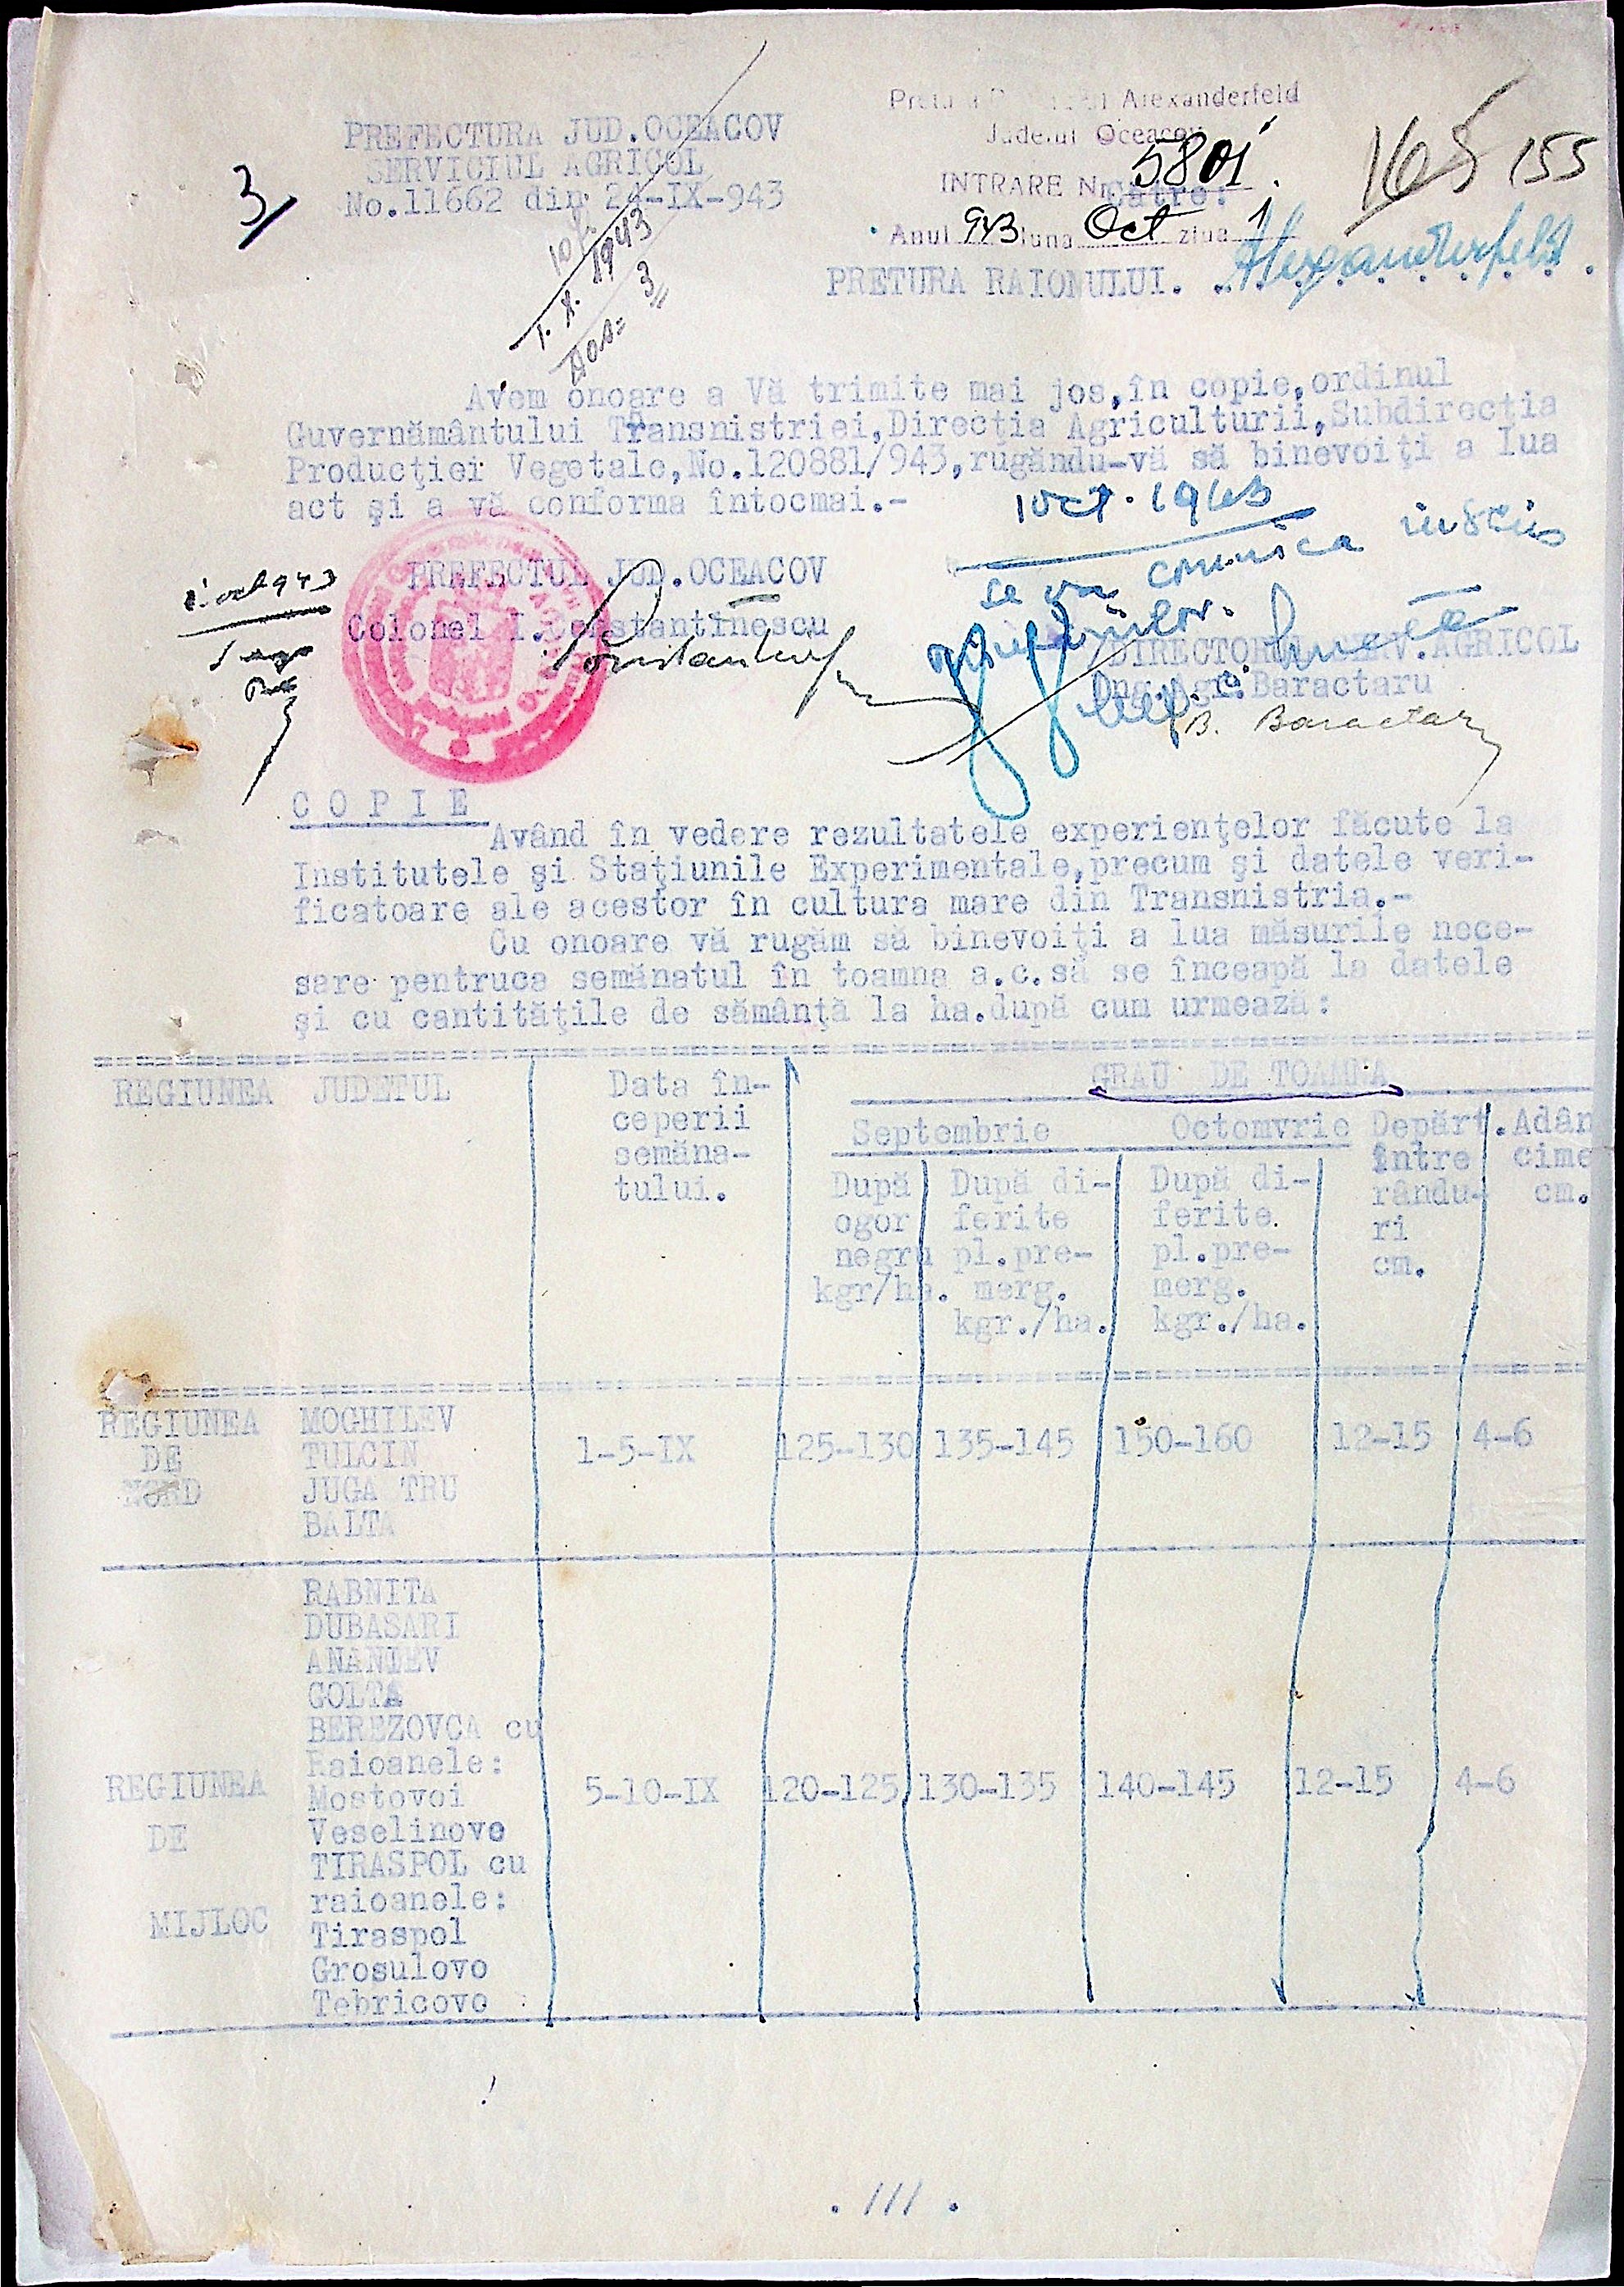 Alexanderfeld
Judetul Oceacov
INTRARE Nr. 5801
Anul 943 luna Oct ziua 1
165 155
3
PREFECTURA JUD.OCEACOV
SERVICIUL AGRICOL
No.11662 din 24-IX-943
Către:
PRETURA RAIONULUI. Alexanderfeld
1.X.1943
3
Avem onoare a Vă trimite mai jos,în copie,ordinul
Guvernământului Transnistriei,Direcţia Agriculturii,Subdirecţia
Producţiei Vegetale,No.120881/943,rugându-vă să binevoiţi a lua
act şi a vă conforma întocmai.-
1 oct. 1943
se va comunica
PREFECTUL JUD.OCEACOV
Colonel I.Constantinescu
DIRECTORUL SERV.AGRICOL
Ing.Agr. Baractaru
B. Baractaru
C O P I E
Având în vedere rezultatele experienţelor făcute la
Institutele şi Staţiunile Experimentale,precum şi datele veri-
ficatoare ale acestor în cultura mare din Transnistria.-
Cu onoare vă rugăm să binevoiţi a lua măsurile nece-
sare pentruca semănatul în toamna a.c.să se înceapă la datele
şi cu cantităţile de sămânţă la ha.după cum urmează:
REGIUNEA JUDETUL Data în- GRAU DE TOAMNA
ceperii Septembrie Octomvrie Depărt. Adân
semăna- între cime
tului. După După di- După di- rându- cm.
ogor ferite ferite ri
negru pl.pre- pl.pre- cm.
kgr/ha. merg. merg.
kgr./ha. kgr./ha.
REGIUNEA MOGHILEV
DE TULCIN 1-5-IX 125-130 135-145 150-160 12-15 4-6
NORD JUGA TRU
BALTA
RABNITA
DUBASARI
ANANIEV
GOLTA
BEREZOVCA cu
Raioanele:
REGIUNEA Mostovoi 5-10-IX 120-125 130-135 140-145 12-15 4-6
DE Veselinovo
TIRASPOL cu
raioanele:
MIJLOC Tiraspol
Grosulovo
Tebricovo
. /// .